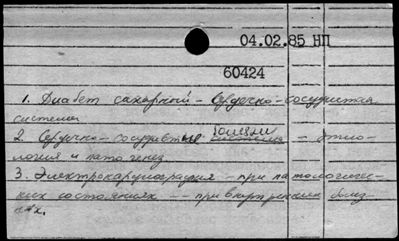 04.02.85 НП
60424
1. Диабет сахарный – Сердечно-сосудистая
система
2. Сердечно-сосудистые болезни – этио-
логия и патогенез
3. Электрокардиография – при патологичес-
ких состояниях -- при внутренних болез
нях.